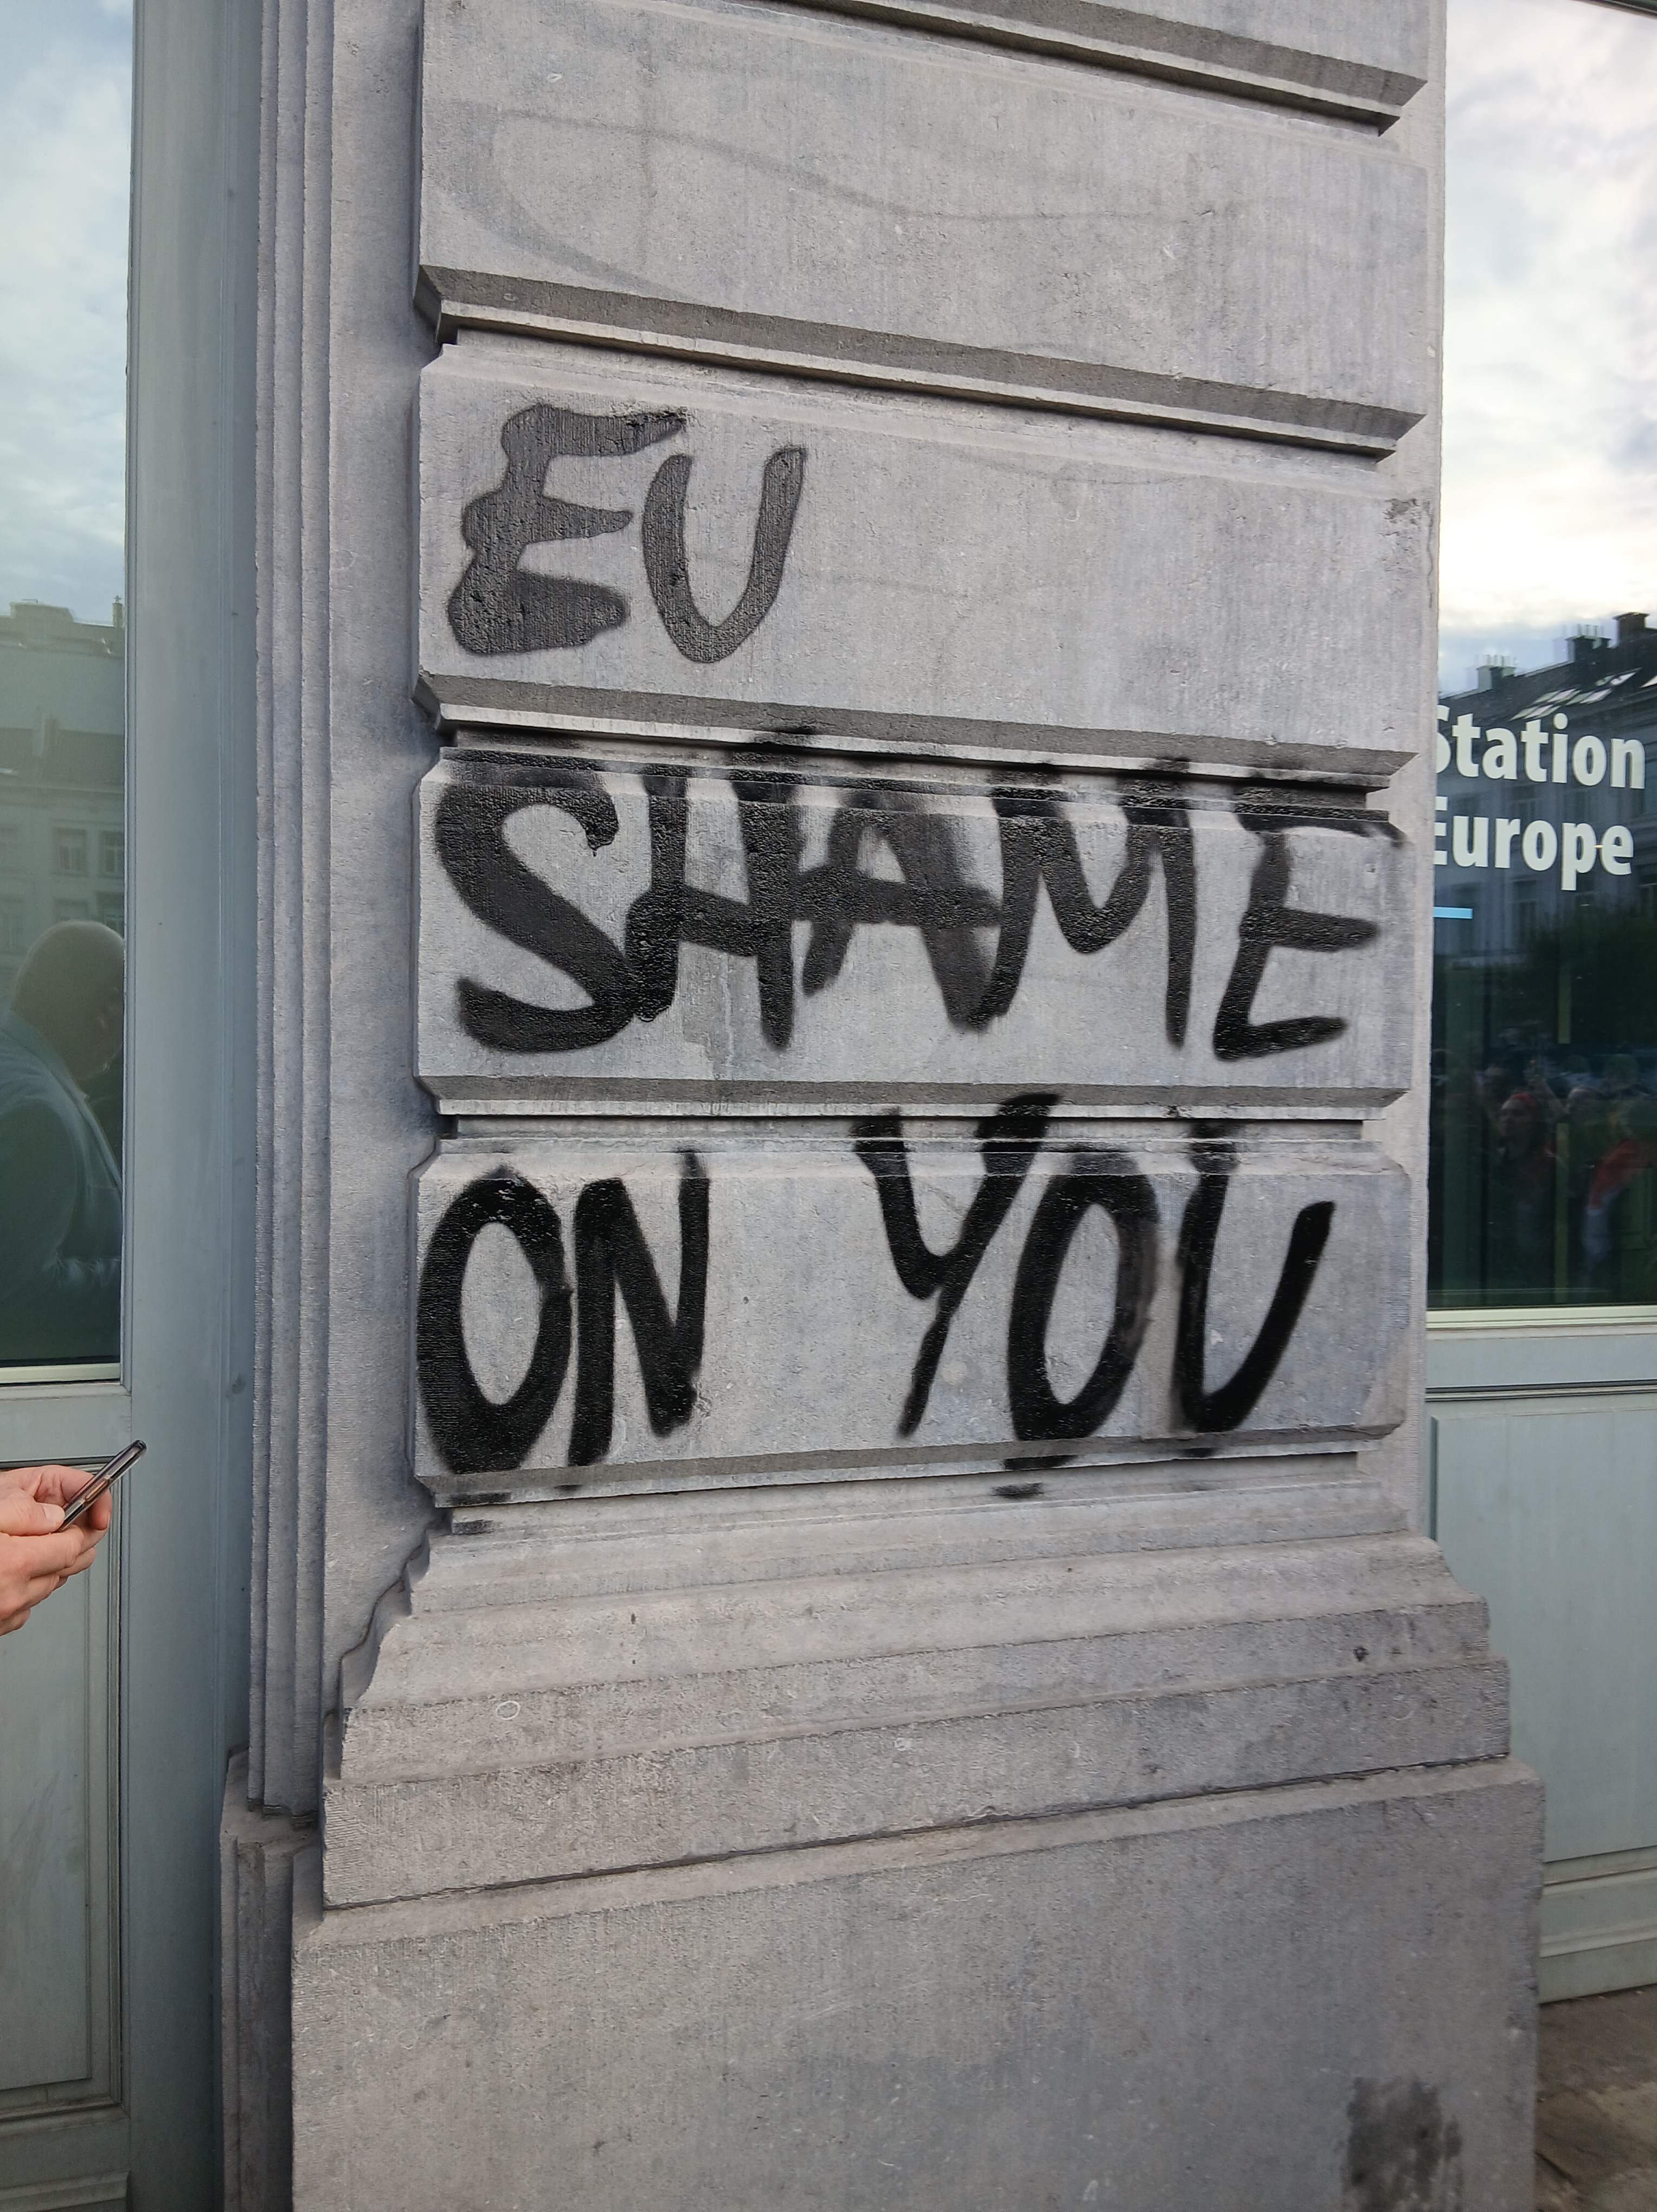 EU
SHAME
ON YOU
Station
Europe